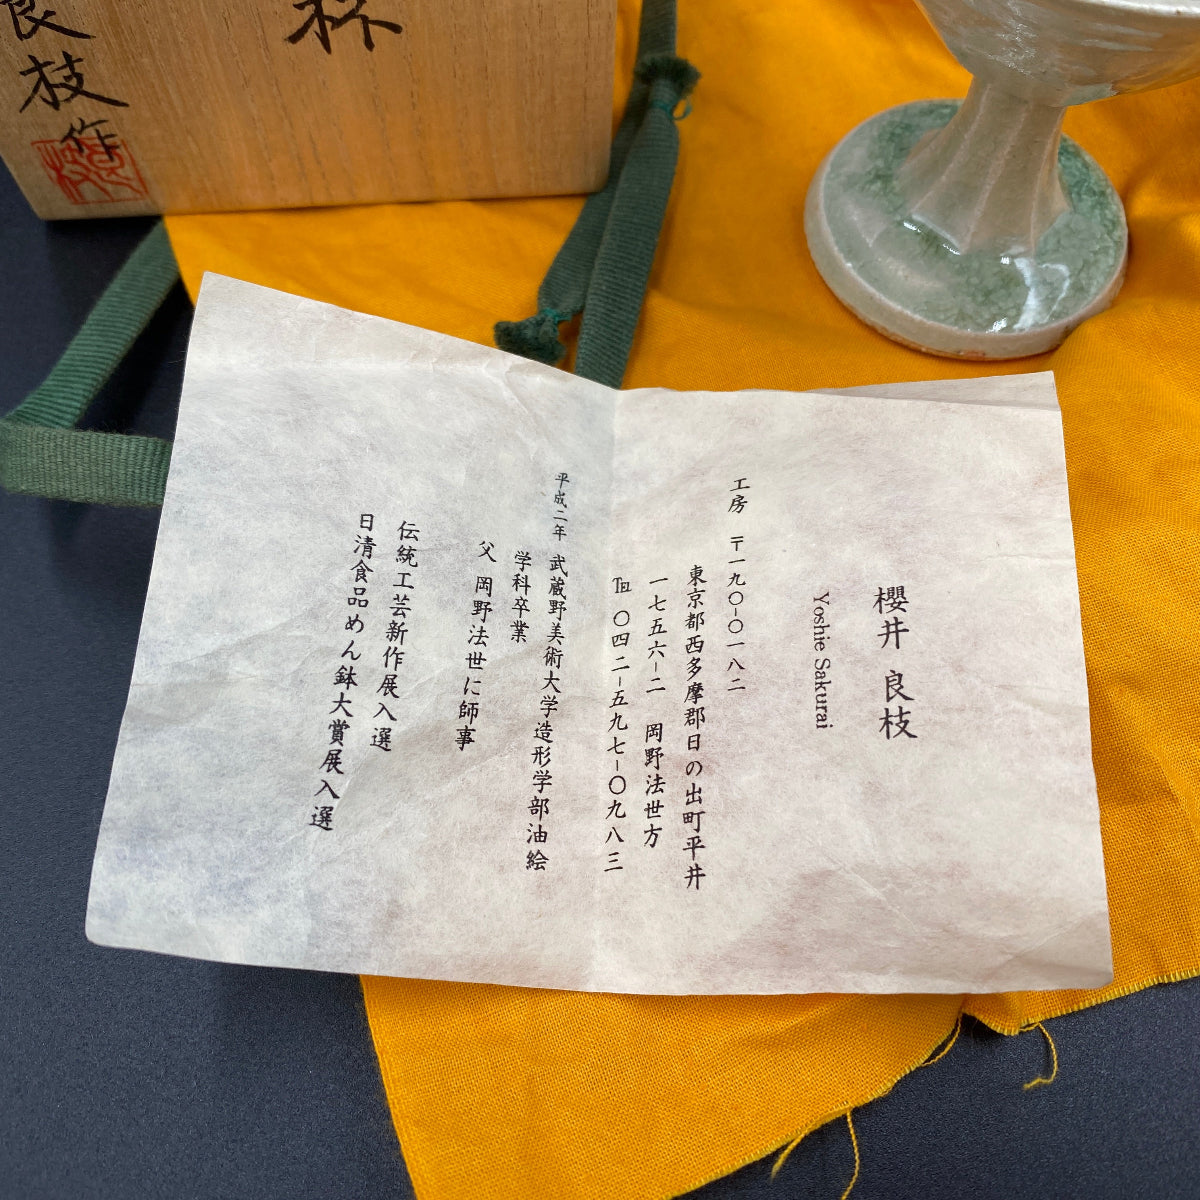 杯
良枝作
櫻井 良枝
Yoshie Sakurai
工房 〒一九〇-〇一八二
東京都西多摩郡日の出町平井
一七五六-二 岡野法世方
℡ 〇四二-五九七-〇九八三
平成二年 武蔵野美術大学造形学部油絵
学科卒業
父 岡野法世に師事
伝統工芸新作展入選
日清食品めん鉢大賞展入選